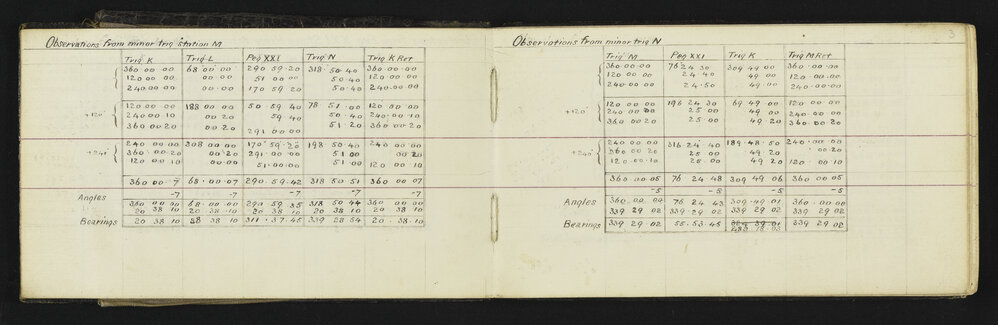 Observations from minor trig station M
Trig K Trig L Peg XXI Trig N Trig K Ret
360 00 00 68 00 00 290 59 20 318 50 40 360 00 00
120 00 00 51 00 00 50 40 120 00 00
240 00 00 170 59 20 50 40 240 00 00
120 00 00 188 00 00 50 59 40 78 51 00 120 00 00
+120° 240 00 10 00 20 59 40 50 40 240 00 10
360 00 20 00 20 291 00 00 51 20 360 00 20
240 00 00 308 00 00 170 59 20 198 50 40 240 00 00
+240° 360 00 20 00 20 291 00 00 51 00 00 20
120 00 10 00 00 51 00 00 51 00 120 00 10
360 00 7 68 00 07 290 59 42 318 50 51 360 00 07
-7 -7 -7 -7 -7
Angles 360 00 00 68 00 00 290 59 35 318 50 44 360 00 00
20 38 10 20 38 10 20 38 10 20 38 10 20 38 10
Bearings 20 38 10 88 38 10 311 37 45 339 28 54 20 38 10
3
Observations from minor trig N
Trig M Peg XXI Trig K Trig M Ret
360 00 00 76 24 30 309 49 00 360 00 00
120 00 00 24 40 49 00 120 00 00
240 00 00 24 50 49 00 240 00 00
120 00 00 196 24 30 69 49 00 120 00 00
+120° 240 00 00 25 00 49 00 240 00 00
360 00 20 25 00 49 20 360 00 20
240 00 00 316 24 40 189 48 50 240 00 00
+240° 360 00 20 25 00 49 20 00 20
120 00 10 25 00 49 20 120 00 10
360 00 05 76 24 48 309 49 06 360 00 05
-5 -5 -5 -5
Angles 360 00 00 76 24 43 309 49 01 360 00 00
339 29 02 339 29 02 339 29 02 339 29 02
Bearings 339 29 02 55 53 45 339 29 02